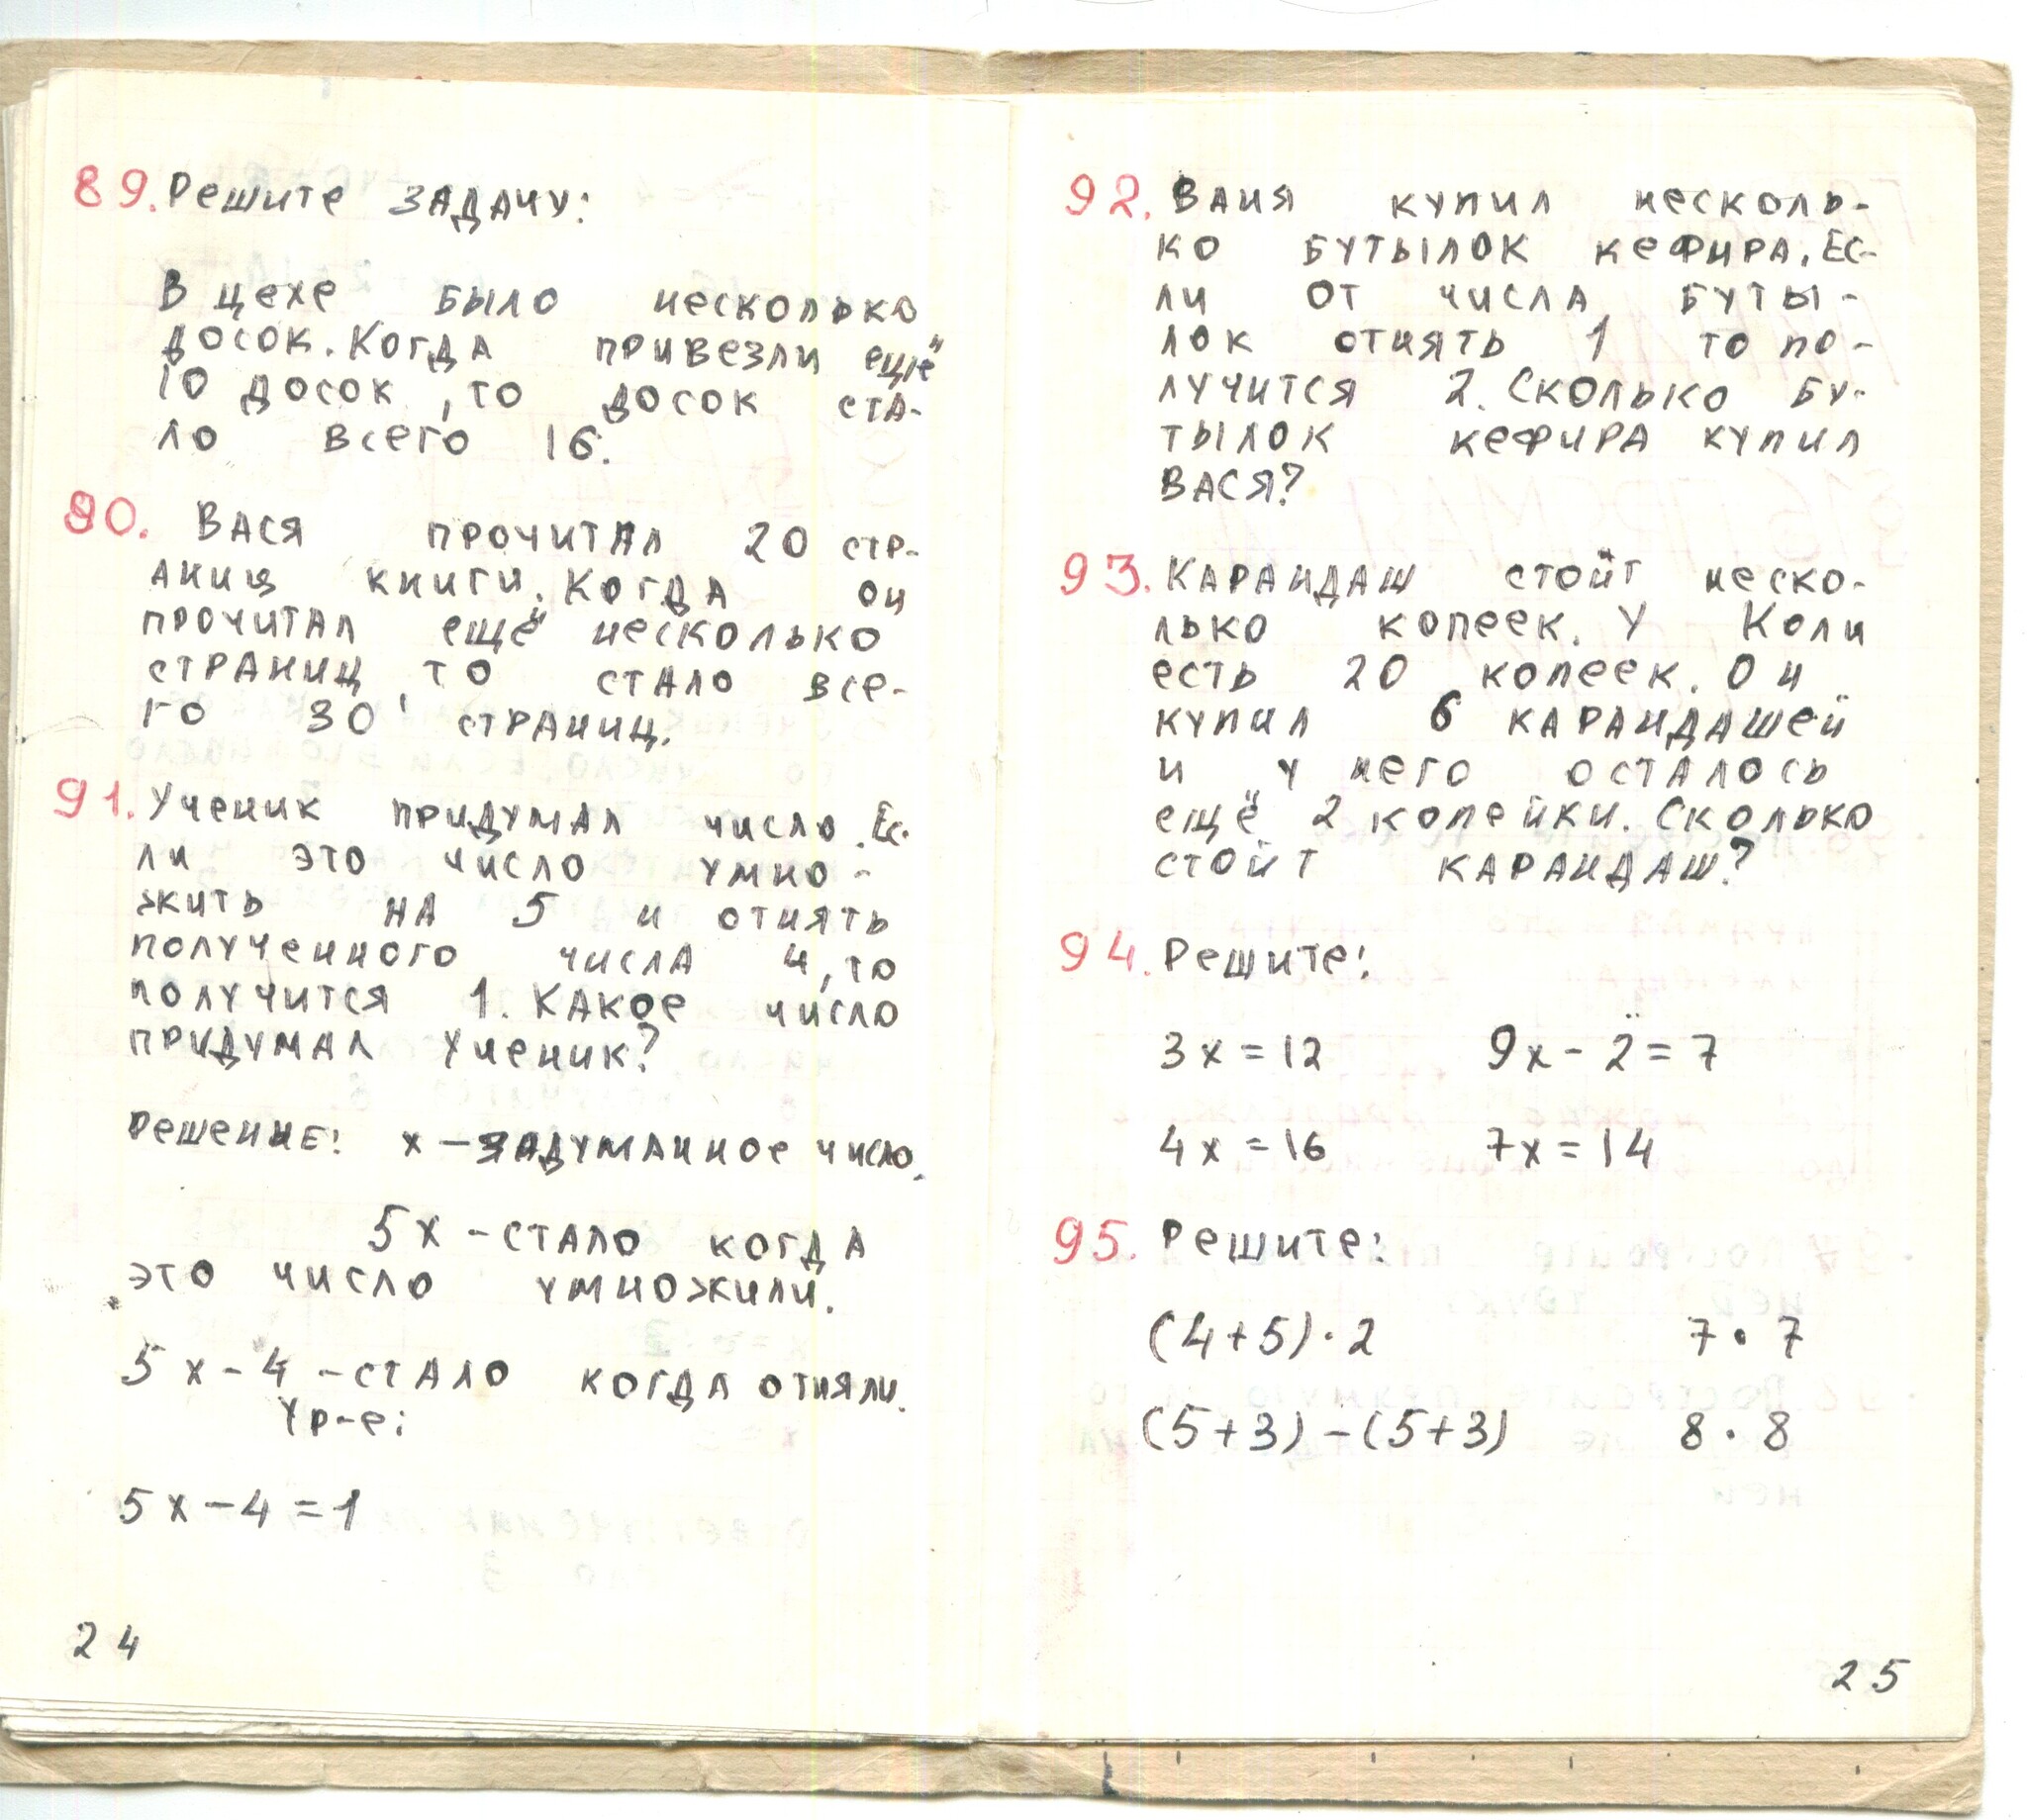 89. Решите задачу:
В цехе было несколько
досок. Когда привезли ещё
10 досок, то досок ста-
ло всего 16.
90. Вася прочитал 20 стр-
аниц книги. Когда он
прочитал ещё несколько
страниц, то стало все-
го 30 страниц.
91. Ученик придумал число. Ес-
ли это число умно-
жить на 5 и отнять
полученного числа 4, то
получится 1. Какое число
придумал ученик?
Решение: x – задуманное число.
5x – стало когда
это число умножили.
5x – 4 – стало когда отняли.
Ур-е:
5x – 4 = 1
24
92. Ваня купил несколь-
ко бутылок кефира. Ес-
ли от числа буты-
лок отнять 1 то по-
лучится 2. Сколько бу-
тылок кефира купил
Вася?
93. Карандаш стойт неско-
лько копеек. У Коли
есть 20 копеек. Он
купил 6 карандашей
и у него осталось
ещё 2 копейки. Сколько
стойт карандаш?
94. Решите:
3x = 12 9x – 2 = 7
4x = 16 7x = 14
95. Решите:
(4+5)·2 7·7
(5+3)–(5+3) 8·8
25